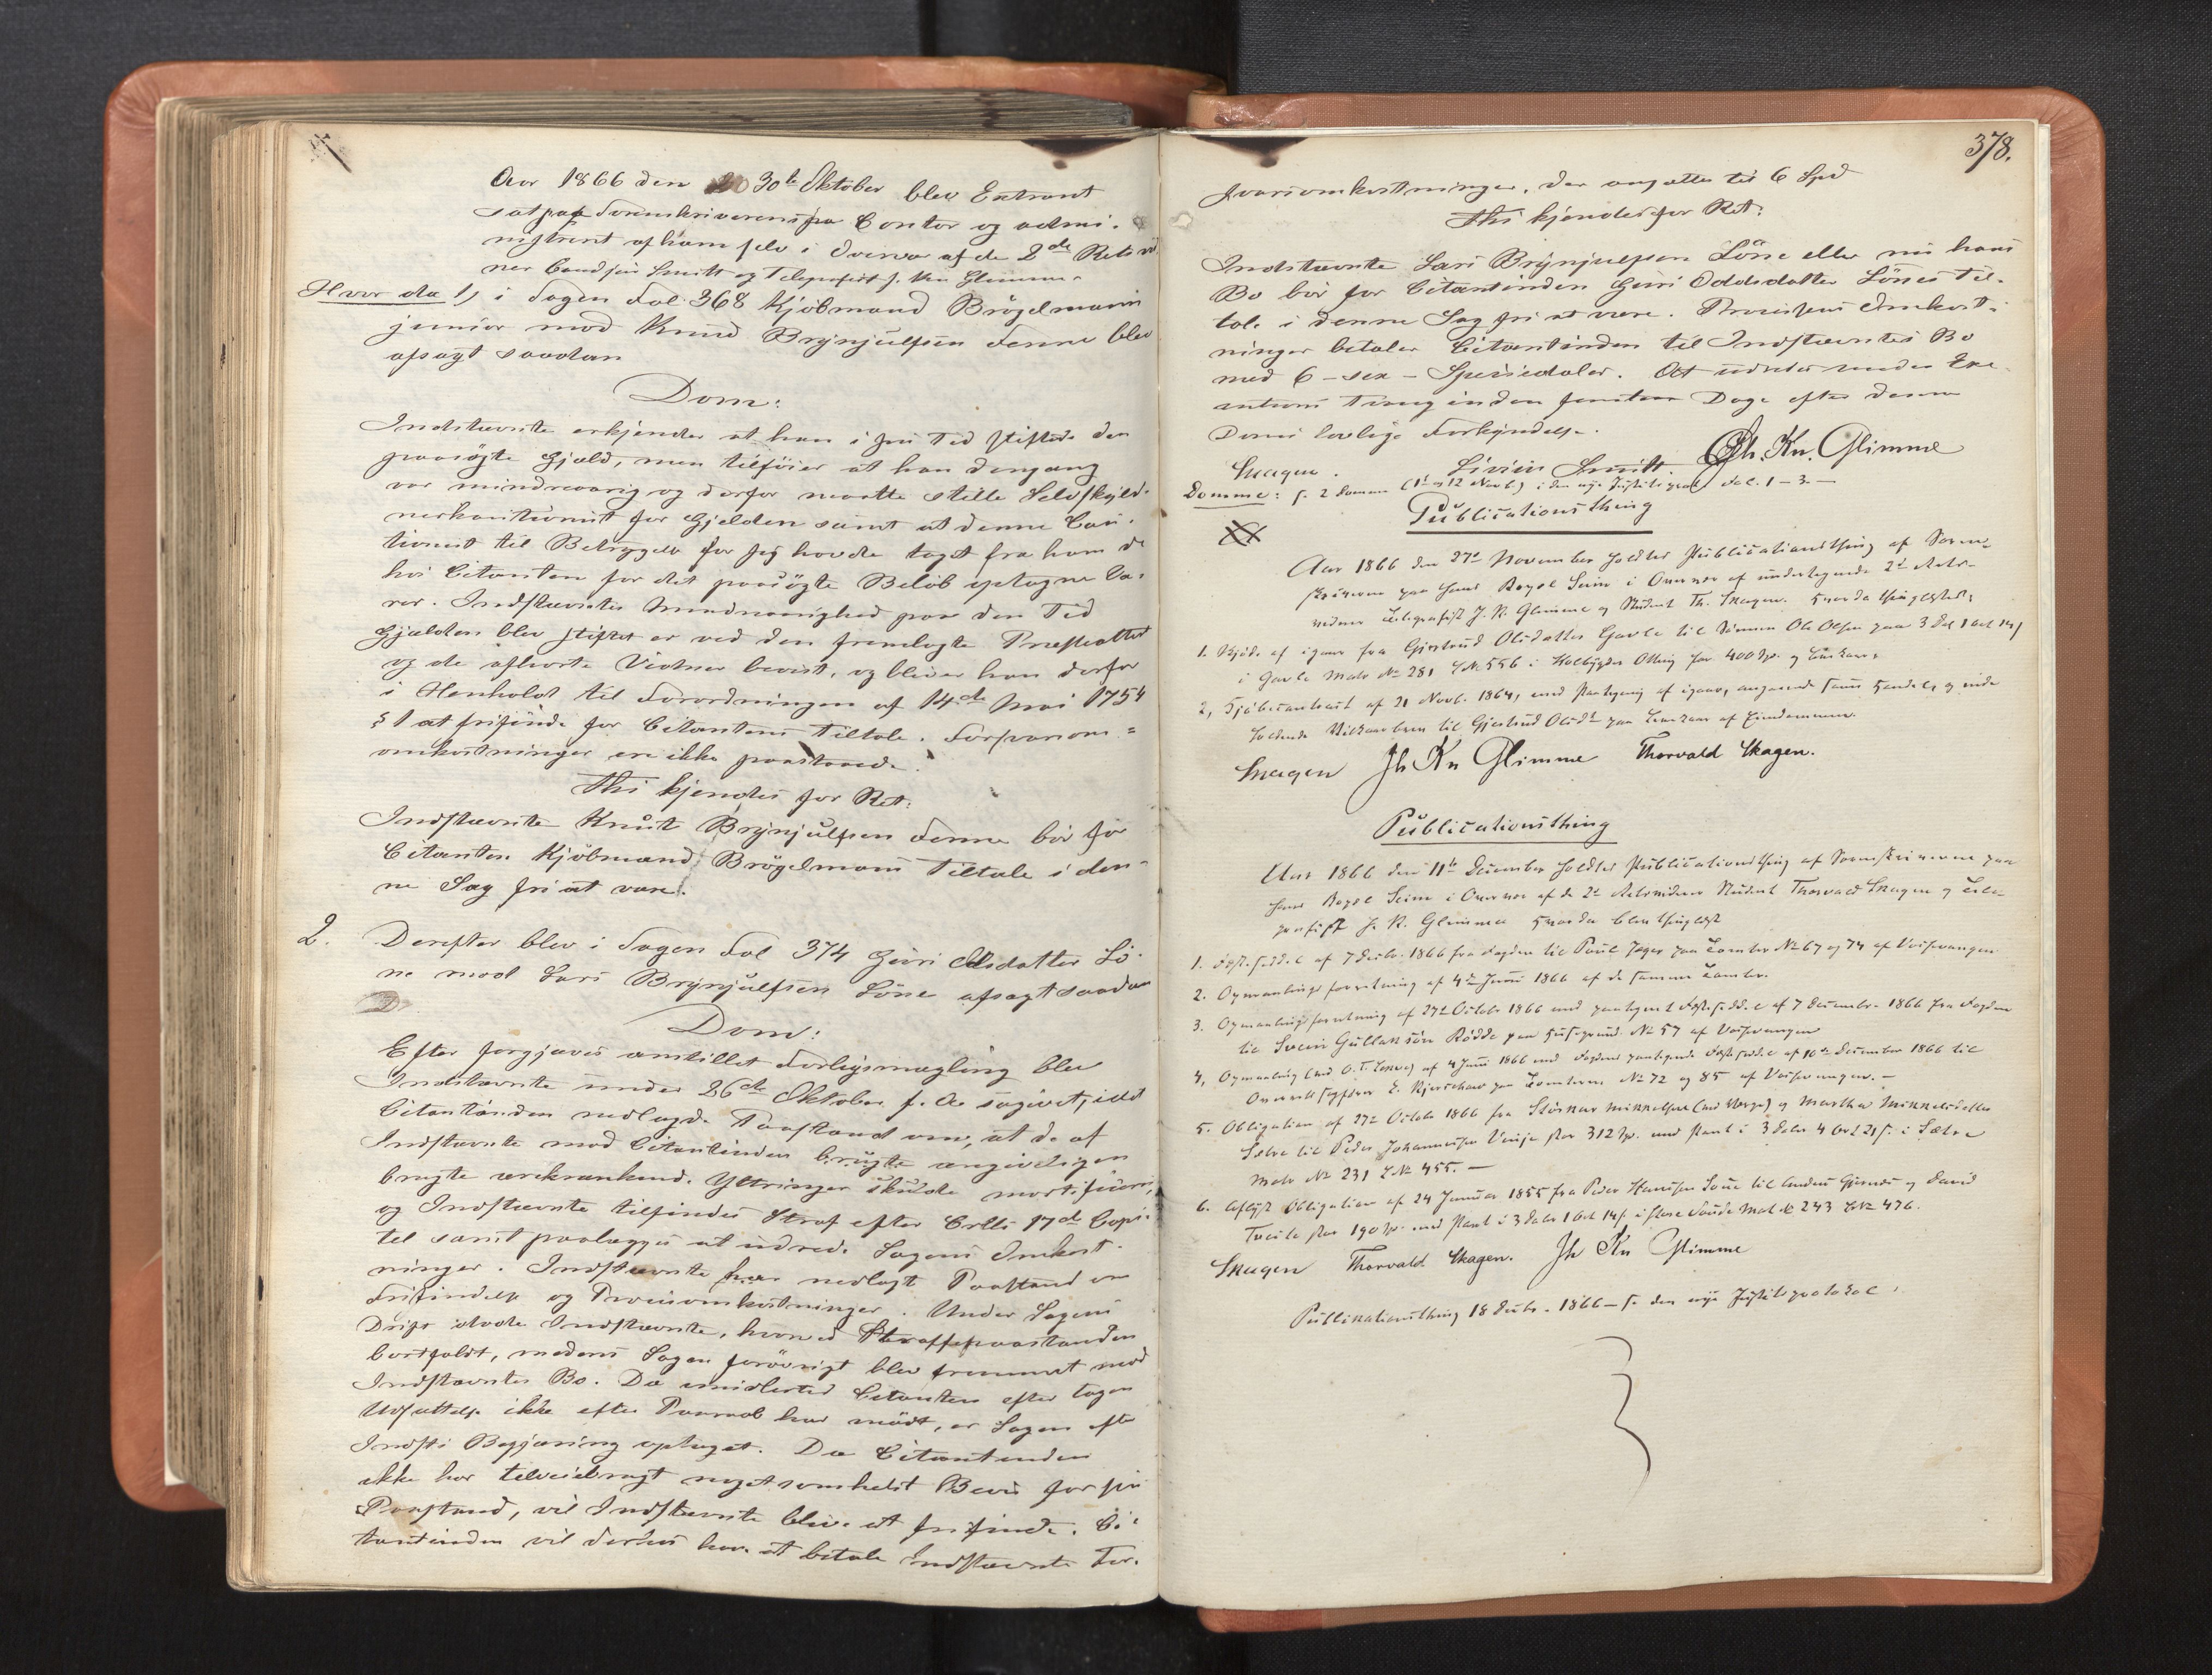 Aar 1866 den 30te Oktober blev Extraret
sat paa Sorenskriverens Contor og admi-
nistreret af ham selv i Overvær af de 2de Retsvid-
ner Cand jur Smitt og Telegrafist J. Kn Glimme.
Hvor da 1, i Sagen Fol. 368 Kjøbmand Brögelmann
junior mod Knud Brynjulfsen Fenne blev
afsagt saadan
Dom:
Indstævnte erkjender at han i sin Tid stiftede den
paasögte Gjæld, men tilföier at han dengang
var mindreaarig og derfor maatte stille Selvskyld-
nerkautionist for Gjælden samt at denne Cau-
tionist til Betryggelse for sig havde taget fra ham de
hos Citanten for det paasögte Belöb optagne Va-
rer. Indstævntes Mindreaarighed paa den Tid
Gjælden blev stiftet er ved den fremlagte Præsteattest
og de afhörte Vidner bevist, og bliver han derfor
i Henhold til Forordningen af 14de Mai 1754
§ 1 at frifinde for Citantens Tiltale. Forsvarsom-
omkostninger ere ikke paastaaede.
Thi kjendes for Ret:
Indstævnte Knut Brynjulfsen Fenne bör for
Citanten Kjöbmand Brögelmann Tiltale i den-
ne Sag fri at være.
2. Derefter blev i Sagen Fol 374 Guri Oddsdatter Lö-
ne mod Lars Brynjulfsen Löne afsagt saadan
Dom:
Efter forgjæves anstillet Forligsmægling blev
Indstævnte under 26de Oktober f. A. sagsøgt, idet
Citantinden nedlagde Paastand om, at de af
Indstævnte mod Citantinden brugte angiveligen
brugte ærekrænkende Yttringer skulde mortificeres,
og Indstævnte tilfindes Straf efter Crlls 17de Capi-
tel samt paalægges at udrede Sagens Omkost-
ninger. Indstævnte har nedlagt Paastand om
Frifindelse og Procesomkostninger. Under Sagens
Drift døde Indstævnte, hvorved Straffepaastanden
bortfaldt, medens Sagen forövrigt blev fremmet mod
Indstævntes Bo. Da imidlertid Citanten efter tagen
Udsættelse ikke efter Paaraab har mödt, er Sagen efter
Indst.s Begjæring optaget. Da Citantinden
ikke har tilveiebragt nogetsomhelst Bevis for sin
Paastand, vil Indstævnte blive at frifinde. Ci-
tantinden vil derhos have at betale Indstævnte For-
378.
svarsomkostninger, der ansættes til 6 Spd
Thi kjendes for Ret:
Indstævnte Lars Brynjulfsen Löne eller nu hans
Bo bör for Citantinden Guri Oddsdatter Lönes Til-
tale i denne Sag fri at være. Processens Omkost-
ninger betaler Citantinden til Indstævntes Bo
med 6 - sex - Speciedaler. Alt udredes under Exe-
cutions Tvang inden femten Dage efter denne
Doms lovlige Forkyndelse.
Skagen. Livius Smitt. Jh. Kn. Glimme
Domme: s. 2 Domme (1te og 12 Novb.) i den nye Justitsprot. Fol. 1-3.-
Publicationsthing
Aar 1866 den 27de November holdtes Publicationsthing af Soren-
skriveren paa hans Bopel Seim i Overvær af undertegnede 2de Rets-
vidner Telegrafist J. K. Glimme og Student Th. Skagen. Hvorda thinglæstes:
1. Skjöde af igaar fra Gjertrud Olsdatter Gavle til Sönnen Ole Olsen paa 3 Dal 1 ort 14 s
i Gavle Matr No 281 LNo 556 i Holbygder Otting for 400 Sp. og Livkaar.
2, Kjöbecontract af 21 Novb. 1864, med Paategning af igaar, angaaende samme Handel, og inde-
holdende Vilkaarbrev til Gjertrud Olsdr paa Livkaar af Eiendommen.
Skagen Jh Kn Glimme Thorvald Skagen.
Publicationsthing
Aar 1866 den 11te December holdtes Publicationsthing af Sorenskriveren paa
hans Bopel Seim i Overvær af de 2de Retsvidner Student Thorvald Skagen og Tele-
grafist J. K. Glimme Hvorda blev thinglæst
1. Fæsteseddel af 7 Decbr. 1866 fra Fogden til Poul Jeger paa Tomter No 67 og 74 af Vossevangen
2. Opmaalingsforretning af 4de Juni 1866 af de samme Tomter.
3. Opmaalingsforretning af 27de Octobr 1866 med paategnet Fæsteseddel af 7 Decembr 1866 fra Fogden
til Svein Gullaksön Rödde paa Husegrund No 57 af Vossevangen
4, Opmaaling af 4 Juni 1866 med Fogdens paategnede Fæsteseddel af 10de December 1866 til
L. Kjerschow paa Tomterne No 72 og 85 af Vossevangen. -
5. Obligation af 27de Octobr 1866 fra Störkar Mikkelsen (med Værge) og Martha Mikkelsdatter
Sætre til Peder Johannessen Vinje stor 312 Sp. med Pant i 3 Daler 4 Ort 21 s. i Sætre
Matr No 231 LNo 455. -
6. Aflyst Obligation af 24 Januar 1855 fra Peder Hansen Soue til Anders Gjernes og David
Tvilde stor 190 Sp. med Pant i 3 Daler 1 Ort 14 s. i store Saude Mat.No 243 LNo 476.
Skagen Thorvald Skagen. Jh Kn Glimme
Publikationsthing 18 Decbr. 1866 - s. den nye Justitsprotokol.